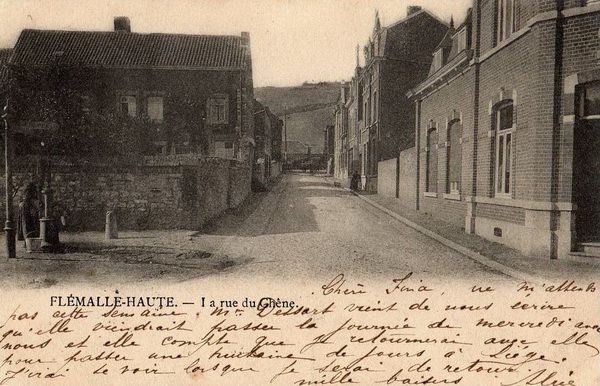 FLÉMALLE-HAUTE. — La rue du Chêne.
Chère Fina, ne m'attends
pas cette semaine. Mme Dessart vient de nous écrire
qu'elle viendrait passer la journée de mercredi avec
nous et elle compte que je retournerai avec elle
pour passer une huitaine de jours à Liège.
J'irai te voir lorsque je serai de retour.
mille baisers